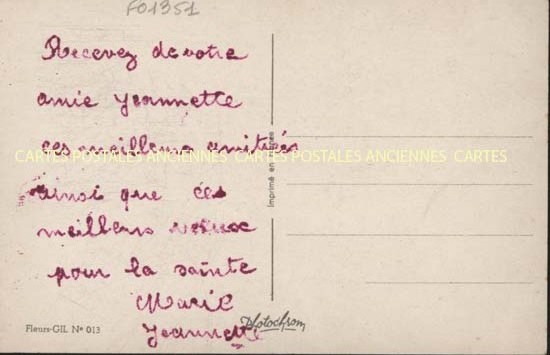 F01351
Recevez de votre
amie Jeannette
ces meilleurs amitiés
CARTES POSTALES ANCIENNES CARTES POSTALES ANCIENNES CARTES
ainsi que ces
meillers veoux
pour la sainte
Marie
Jeannette
Imprimé en
Fleurs-GIL N° 013
Photochrom